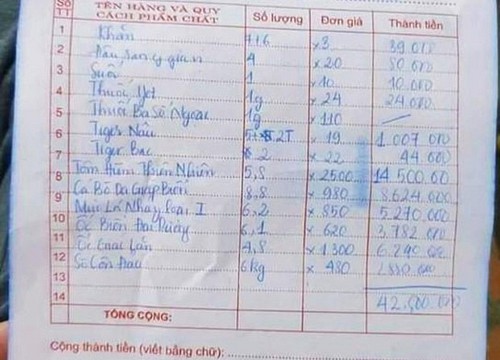 Số TT TÊN HÀNG VÀ QUY CÁCH PHẨM CHẤT Số lượng Đơn giá Thành tiền
1 Khăn 7+6 x 3 39 000
2 4 x 20 80 000
3 Suối 1 x 10 10.000
4 Thuốc 1g x 24 24.000
5 Thuốc Ba Số Ngoại 1g x 110
6 Tiger Nâu 2T x 19 1.007 000
7 Tiger Bạc 2 x 22 44.000
8 Tôm Hùm Thiên Nhiên 5,8 x 2500 14 500.000
9 Cá Bò Da Giáp Biển 8,8 x 980 8.624.000
10 Loại I 6,2 x 850 5.270 000
11 Ốc Biển Đại Dương 6,1 x 620 3.782 000
12 Ốc 4,8 x 1300 6.240 000
13 Sò Côn Đảo 6kg x 480 2.880.000
14 42.500 000
TỔNG CỘNG:
Cộng thành tiền (viết bằng chữ):